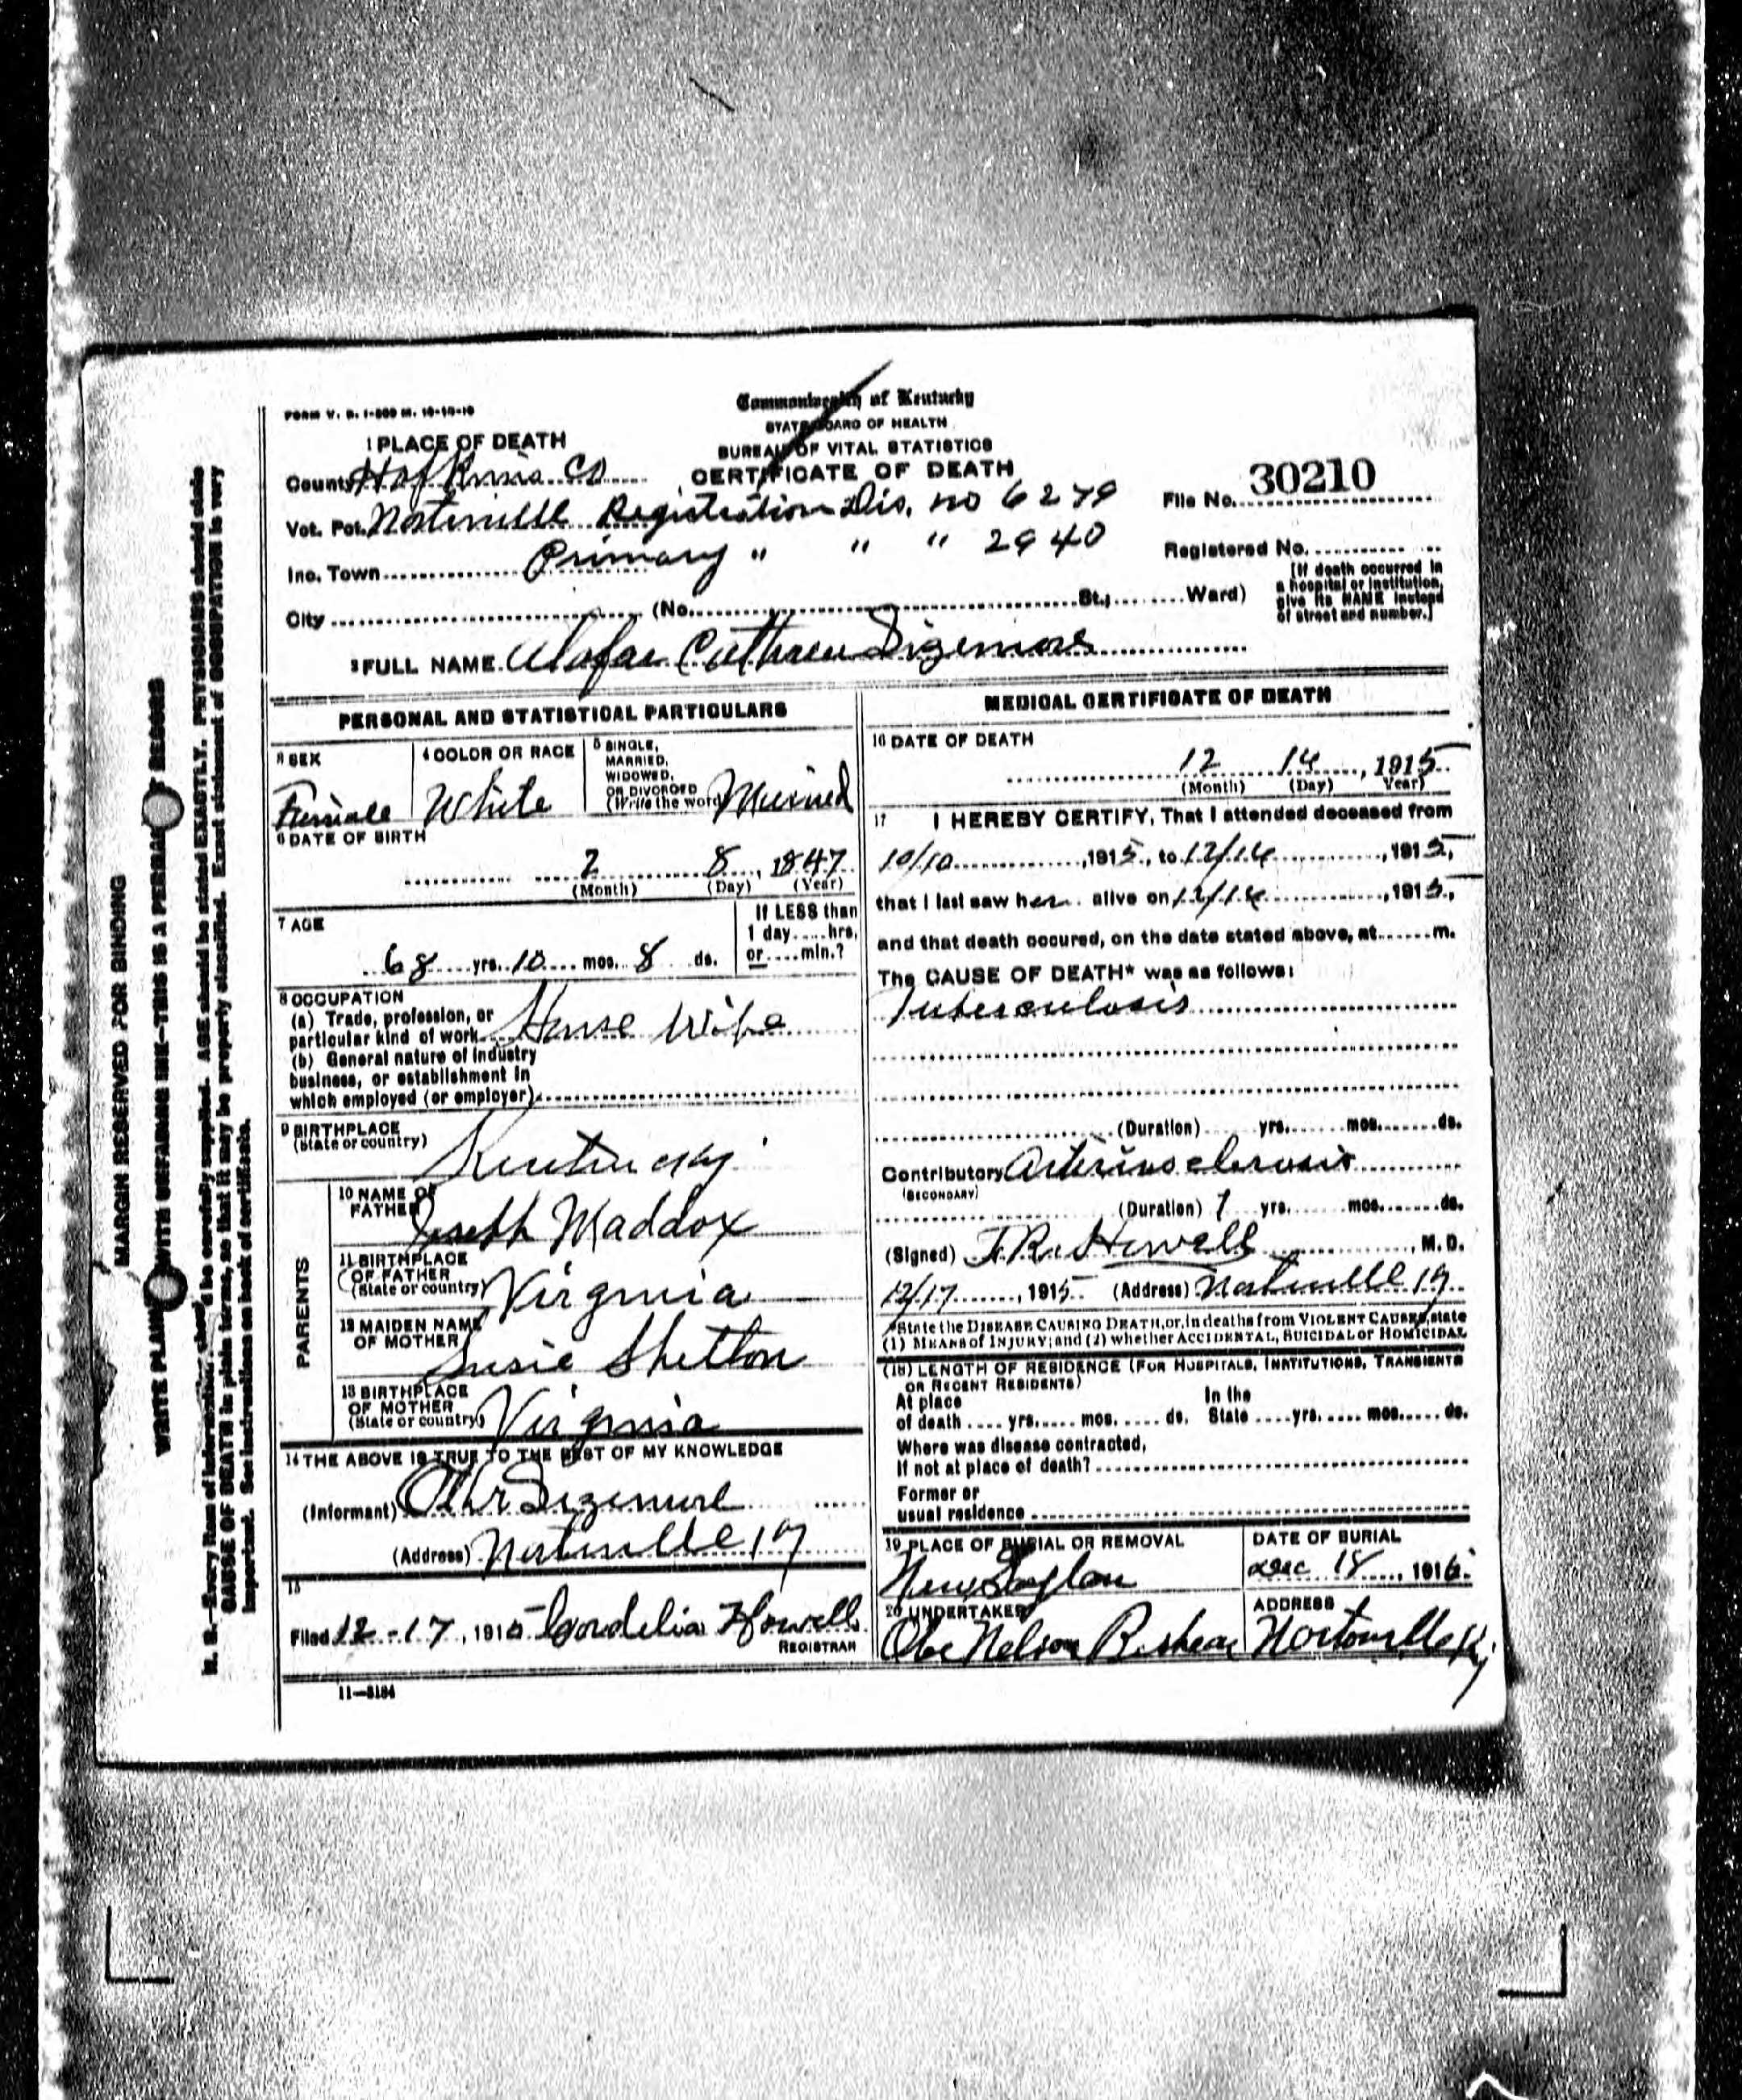 FORM V. S. 1-500 M. 10-10-10
Commonwealth of Kentucky
STATE BOARD OF HEALTH
BUREAU OF VITAL STATISTICS
CERTIFICATE OF DEATH
1 PLACE OF DEATH
County Hopkins Co
File No. 30210
Vot. Pct. Nortonville Registration Dis. no 6279
Inc. Town Primary " " " 2940
Registered No.
City (No. St.; Ward)
[If death occurred in
a hospital or institution,
give its NAME instead
of street and number.]
2 FULL NAME Cathren Sizemore
PERSONAL AND STATISTICAL PARTICULARS
3 SEX
Female
4 COLOR OR RACE
White
5 SINGLE,
MARRIED,
WIDOWED,
OR DIVORCED
(Write the word) Married
6 DATE OF BIRTH
2 8, 1847
(Month) (Day) (Year)
7 AGE
68 yrs. 10 mos. 8 ds.
If LESS than
1 day.....hrs.
or....min.?
8 OCCUPATION
(a) Trade, profession, or
particular kind of work House Wife
(b) General nature of industry
business, or establishment in
which employed (or employer)
9 BIRTHPLACE
(State or country)
Kentucky
PARENTS
10 NAME OF
FATHER
Joseph Maddox
11 BIRTHPLACE
OF FATHER
(State or country) Virginia
12 MAIDEN NAME
OF MOTHER
Susie Shelton
13 BIRTHPLACE
OF MOTHER
(State or country) Virginia
14 THE ABOVE IS TRUE TO THE BEST OF MY KNOWLEDGE
(Informant) Sizemore
(Address) Nortonville Ky
15
Filed 12-17, 1915 Cordelia Howell
REGISTRAR
11—5184
MEDICAL CERTIFICATE OF DEATH
16 DATE OF DEATH
12 16, 1915
(Month) (Day) Year)
17 I HEREBY CERTIFY, That I attended deceased from
10/10, 1915, to 12/16, 1915,
that I last saw her alive on 12/16, 1915,
and that death occured, on the date stated above, at m.
The CAUSE OF DEATH* was as follows:
Tuberculosis
(Duration) yrs. mos. ds.
Contributory Arteriosclerosis
(SECONDARY)
(Duration) 1 yrs. mos. ds.
(Signed) J.R. Howell, M. D.
12/17, 1915 (Address) Nortonville Ky
*State the DISEASE CAUSING DEATH, or, in deaths from VIOLENT CAUSES, state
(1) MEANS of INJURY; and (2) whether ACCIDENTAL, SUICIDAL or HOMICIDAL
(18) LENGTH OF RESIDENCE (FOR HOSPITALS, INSTITUTIONS, TRANSIENTS
OR RECENT RESIDENTS)
At place In the
of death yrs. mos. ds. State yrs. mos. ds.
Where was disease contracted,
If not at place of death?
Former or
usual residence
19 PLACE OF BURIAL OR REMOVAL
New
DATE OF BURIAL
Dec 18, 1915
20 UNDERTAKER
Obe Nelson
ADDRESS
Nortonville Ky
MARGIN RESERVED FOR BINDING
WRITE PLAINLY WITH UNFADING INK—THIS IS A PERMANENT RECORD
N. B.—Every item of information should be carefully supplied. AGE should be stated EXACTLY. PHYSICIANS should state
CAUSE OF DEATH in plain terms, so that it may be properly classified. Exact statement of OCCUPATION is very
important. See instructions on back of certificate.